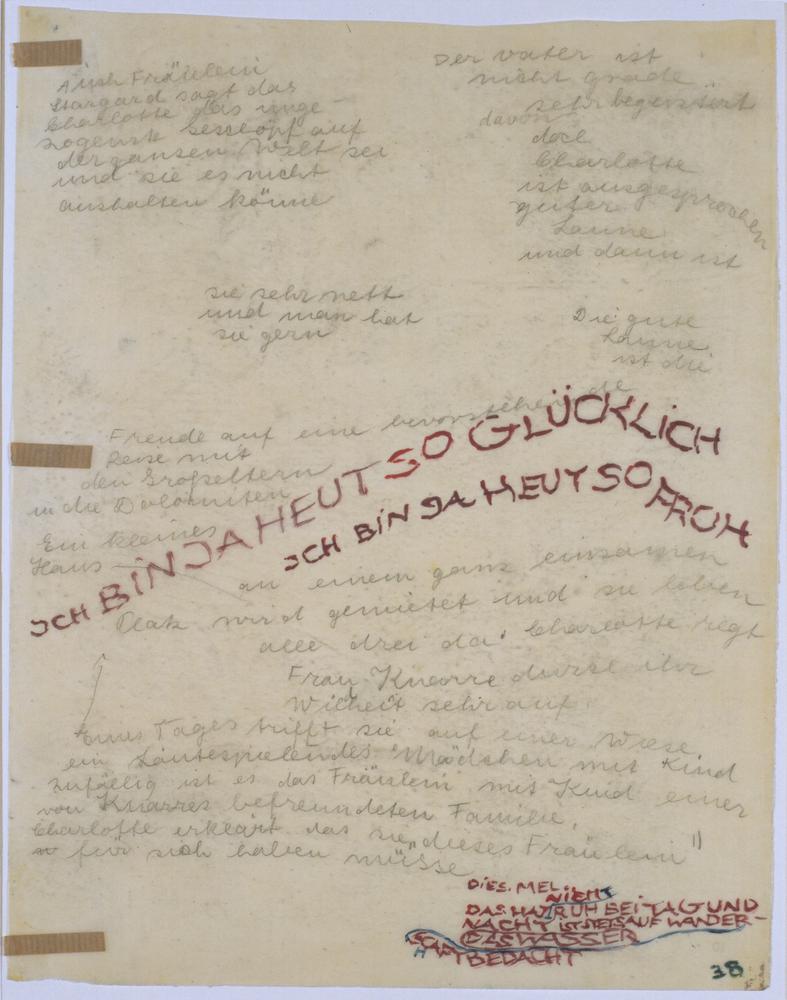 Auch Fräulein
Stargard sagt das
Charlotte das unge-
zogenste Gescköpf auf
der ganzen Welt sei
und sie es nicht
aushalten könne
Der Vater ist
nicht grade
sehr begeistert
davon
doch
Charlotte
ist ausgesprochen
guter
Laune
und dann ist
sie sehr nett
und man hat
sie gern
Die gute
Laune
ist die
Freude auf eine bevorstehende
Reise mit
den Großeltern
in die Dolomiten
JCH BiN JA HEUT SO GLÜCKLiCH
JCH BiN JA HEUT SO FROH
Ein kleines
Haus
an einem ganz einsamen
Platz wird gemietet und sie leben
alle drei da. Charlotte regt
Frau Knarre durch ihr
sehr auf.
Eines Tages trifft sie auf einer Wiese
ein Lautespielendes Mädchen mit Kind
zufällig ist es das Fräulein mit Kind einer
von Knarres befreundeten Familie.
Charlotte erklärt das sie „dieses Fräulein"
für sich haben müsse
DiES. MEL.
NiCHT
DAS HAT RUH BEi TAG UND
NACHT iST STETS AUF WANDER-
DAS WASSER
SCHAFT BEDACHT
38